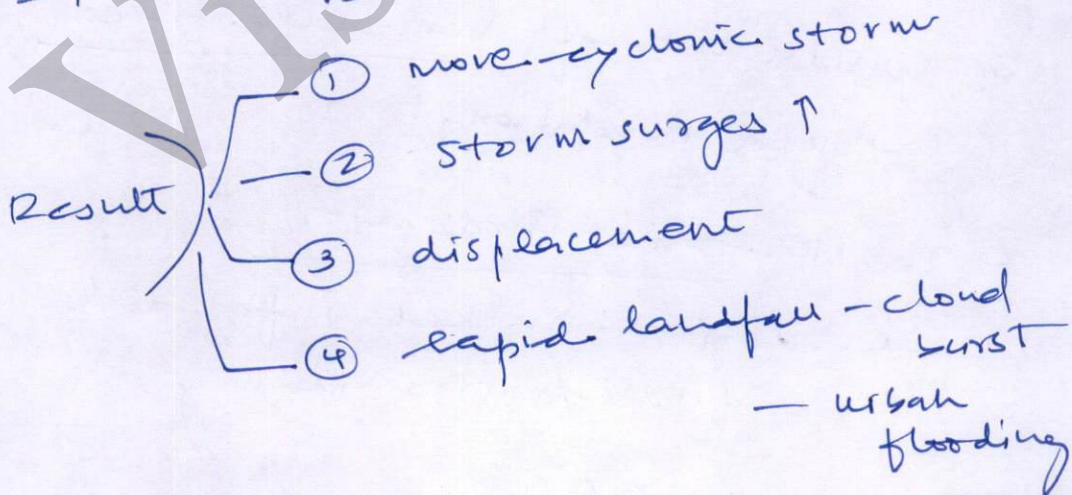 ① more cyclonic storm
② storm surges ↑
Result
③ displacement
④ rapid landfall - cloud
burst
— urban
flooding